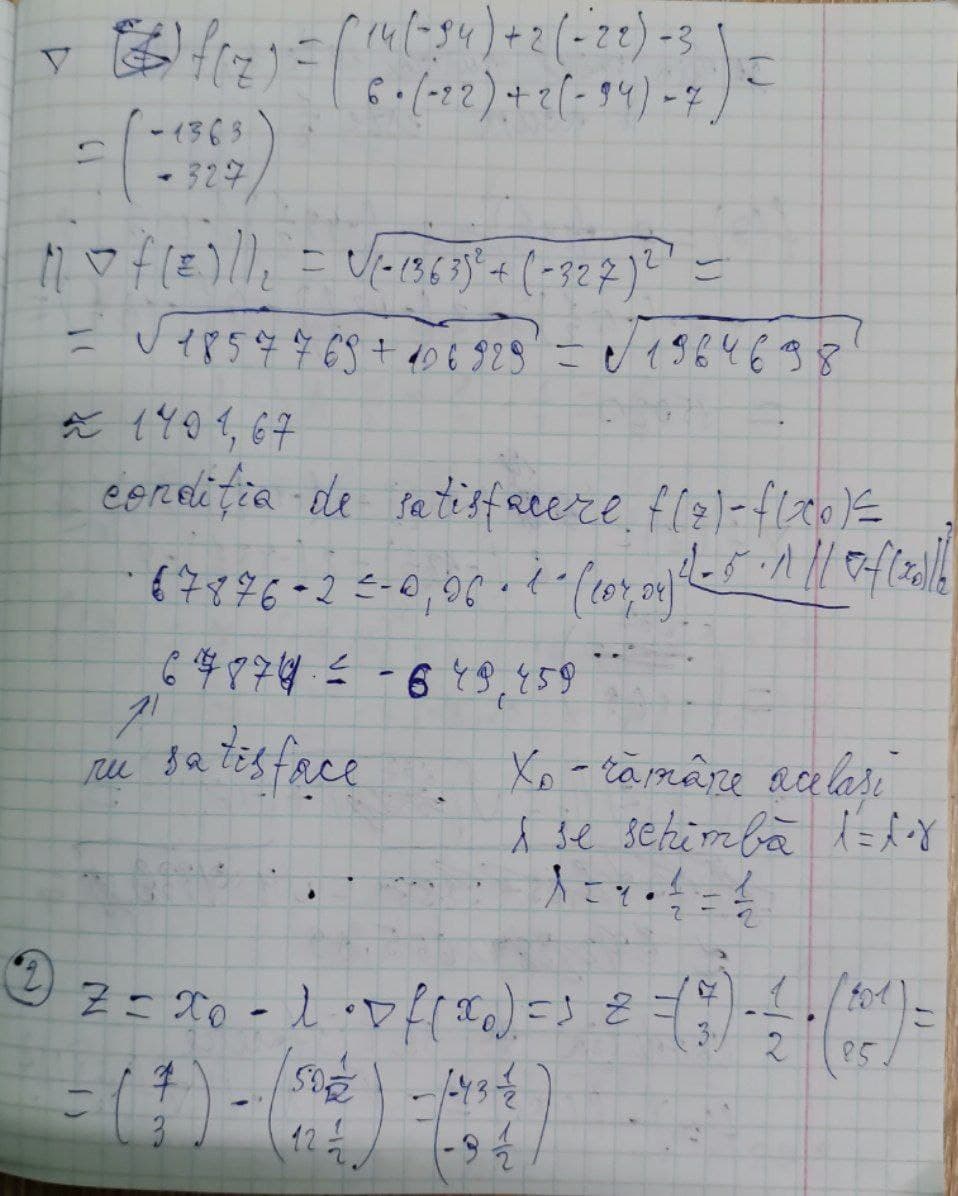 ∇ f(z) = (14(-94) + 2(-22) - 3
6·(-22) + 2(-94) - 7) =
= (-1363
-327)
||∇f(z)||₂ = √((-1363)² + (-327)²) =
= √(1857769 + 106929) = √1964698
≈ 1401,67
condiția de satisfacere f(z) - f(x₀) ≤
- δ·λ||∇f(x₀)||₂²
67876 - 2 ≤ -0,06 · 1 · (104,04)²
67874 ≤ -649,459
nu satisface
x₀ - rămâne același
λ se schimbă λ = λ·γ
λ = 1 · 1/2 = 1/2
2
z = x₀ - λ · ∇f(x₀) => z = (7
3) - 1/2 · (101
25) =
= (7
3) - (50 1/2
12 1/2) = (-43 1/2
-9 1/2)